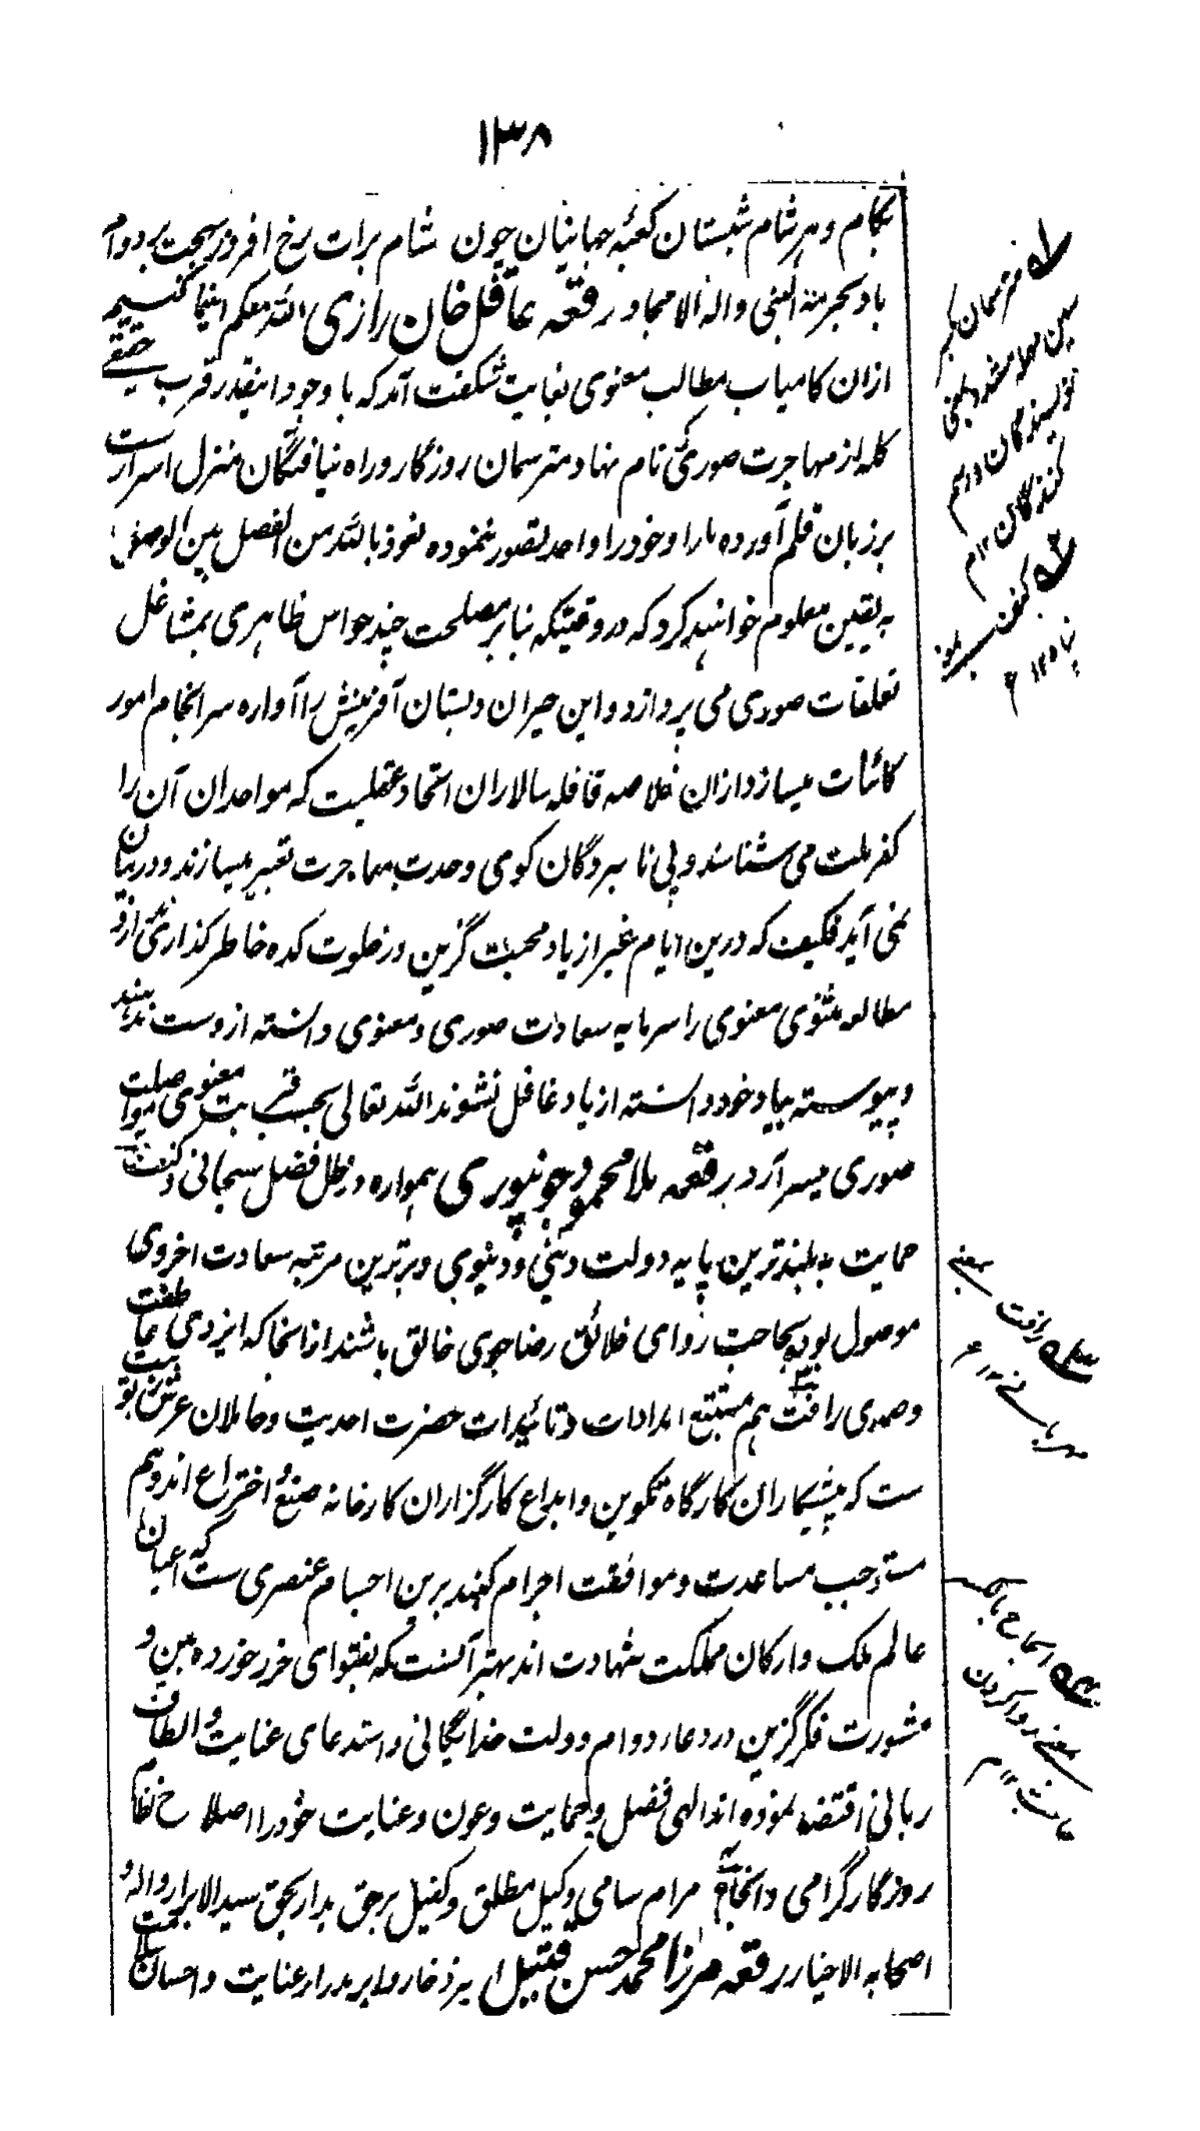 ۱۳۸
بکام و هر شام شبستان کعبهٔ جهانیان چون شام برات رخ افروز بهجت بر دوام
باد بحرمة النبی واله الامجاد رقعه عاقل خان رازی الله معکم اینما کنتم
ازان کامیاب مطالب معنوی بغایت شگفت آمد که با وجود اینقدر قرب حقیقی
کله از مهاجرت صوری نام نهاد مترسمان روزگار و راه نیافتگان منزل اسرار ست
بر زبان قلم آورده مارا و خود را واحد تصور ننموده نعوذ بالله من الفصل بین الوصفین
به یقین معلوم خواهند کرد که در وقتیکه بنا بر مصلحت چند حواس ظاهری بمشاغل
تعلقات صوری می پردازد و این حیران دبستان آفرینش را آواره سرانجام امور
کائنات میسازد ازان خلاصه قافله سالاران اتحاد غفلیست که مواحدان آن را
کفر ملت می شناسند و پی نا سپردگان کوی وحدت بمهاجرت تعبیر میسازند و در بیان
نمی آید فکیف که درین ایام غیر از یاد محبت گزین در خلوت کده خاطر گذاری
مطالعه مثنوی معنوی را سرمایه سعادت صوری و معنوی دانسته از دست ندهند
و پیوسته بیاد خود دانسته از یاد غافل نشوند الله تعالی بحسب قربت معنوی مواصلت
صوری میسر آرد رقعه ملا محمود جونپوری همواره در ظل فضل سبحانی و کنف
حمایت به بلندترین پایه دولت دینی و دنیوی و برترین مرتبه سعادت اخروی
موصول بوده بحاجت روای خلائق رضا جوی خالق باشند از انجا که ایزدی عاطفت
و صمدی رافت هم مستتبع امدادات و تائیدات حضرت احدیت و حاملان عرش ربوبیت
ست که پیشکاران کارگاه تکوین و ابداع کارگزاران کارخانه صنع و اختراع اند و هم
مستوجب مساعدت و موافقت اجرام کهند برین اجسام عنصری ست که اعیان
عالم ملک و ارکان مملکت شهادت اند بهتر آنست که بفتوای خرد خورده بین و
مشورت فکر گزین در دعاء دوام دولت خدایگانی و استدعای عنایت و الطاف
ربانی اقتضا نموده اند الهی فضل و حمایت و عون و عنایت خود را اصلاح نظام
روزگار گرامی و انجاح مرام سامی وکیل مطلق و کفیل برحق بدار بحق سید الابرار و اله و
اصحابه الاخیار رقعه مرزا محمد حسن قتیل ابر ذخار و ابر مدرار عنایت و احسان سلامت
مترسمان بکسر
سین مهمله مشدد بمعنی
نویسندگان و رسم
کنندگان ۱۲ م
کنف بمعنی
پناه ۱۲ م
رافت بمعنی
مهربانی ۱۲ م
انجاح بالکسر
بمعنی روا کردن
حاجت ۱۲ م